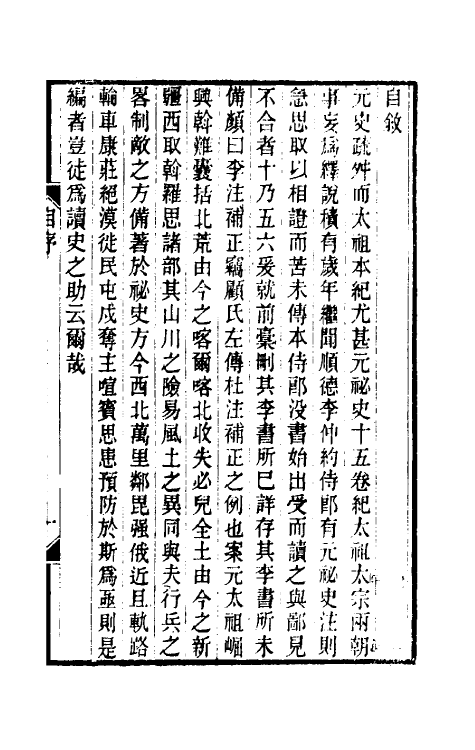 自敘
元史疏舛而太祖本紀尤甚元祕史十五卷紀太祖太宗兩朝
事妄爲釋說積有歲年繼聞順德李仲約侍郎有元祕史注則
急思取以相證而苦未傳本侍郎沒書始出受而讀之與鄙見
不合者十乃五六爰就前稾刪其李書所已詳存其李書所未
備顏曰李注補正竊顧氏左傳杜注補正之例也案元太祖崛
興斡難囊括北荒由今之喀爾喀北收失必兒全土由今之新
疆西取斡羅思諸部其山川之險易風土之異同與夫行兵之
畧制敵之方備著於祕史方今西北萬里鄰毘强俄近且軌路
輪車康莊絕漠徙民屯戍奪主喧賓思患預防於斯爲亟則是
編者豈徒爲讀史之助云爾哉
自序
一